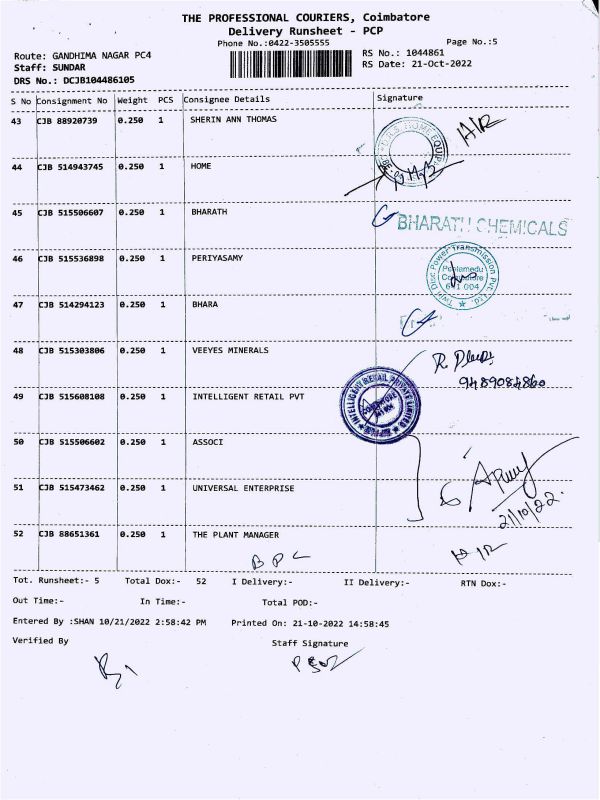 THE PROFESSIONAL COURIERS, Coimbatore
Delivery Runsheet - PCP
Phone No.:0422-3505555
Page No.:5
Route: GANDHIMA NAGAR PC4
RS No.: 1044861
Staff: SUNDAR
RS Date: 21-Oct-2022
DRS No.: DCJB104486105
S No Consignment No Weight PCS Consignee Details Signature
43 CJB 88920739 0.250 1 SHERIN ANN THOMAS
44 CJB 514943745 0.250 1 HOME
45 CJB 515506607 0.250 1 BHARATH
BHARATH CHEMICALS
46 CJB 515536898 0.250 1 PERIYASAMY
Twin Disc Power Transmission Pvt. Ltd.
Peelamedu
Coimbatore
641 004
47 CJB 514294123 0.250 1 BHARA
48 CJB 515303806 0.250 1 VEEYES MINERALS
9489084860
49 CJB 515608108 0.250 1 INTELLIGENT RETAIL PVT
INTELLIGENT RETAIL PRIVATE LIMITED
COIMBATORE
50 CJB 515506602 0.250 1 ASSOCI
51 CJB 515473462 0.250 1 UNIVERSAL ENTERPRISE
21/10/22.
52 CJB 88651361 0.250 1 THE PLANT MANAGER
BPC
Tot. Runsheet:- 5 Total Dox:- 52 I Delivery:- II Delivery:- RTN Dox:-
Out Time:- In Time:- Total POD:-
Entered By :SHAN 10/21/2022 2:58:42 PM Printed On: 21-10-2022 14:58:45
Verified By Staff Signature